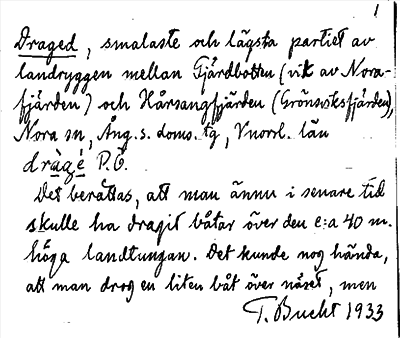 1
Draged, smalaste och lägsta partiet av
landryggen mellan Fjärdbotten (vik av Nora-
fjärden) och Hårsangfjärden (Grönsviksfjärden),
Nora sn, Ång. s. doms. tg, Vnorrl. län
dràgé P.Ö.
Det berättas, att man ännu i senare tid
skulle ha dragit båtar över den c:a 40 m.
höga landtungan. Det kunde nog hända,
att man drog en liten båt över näset, men
T. Bucht 1933